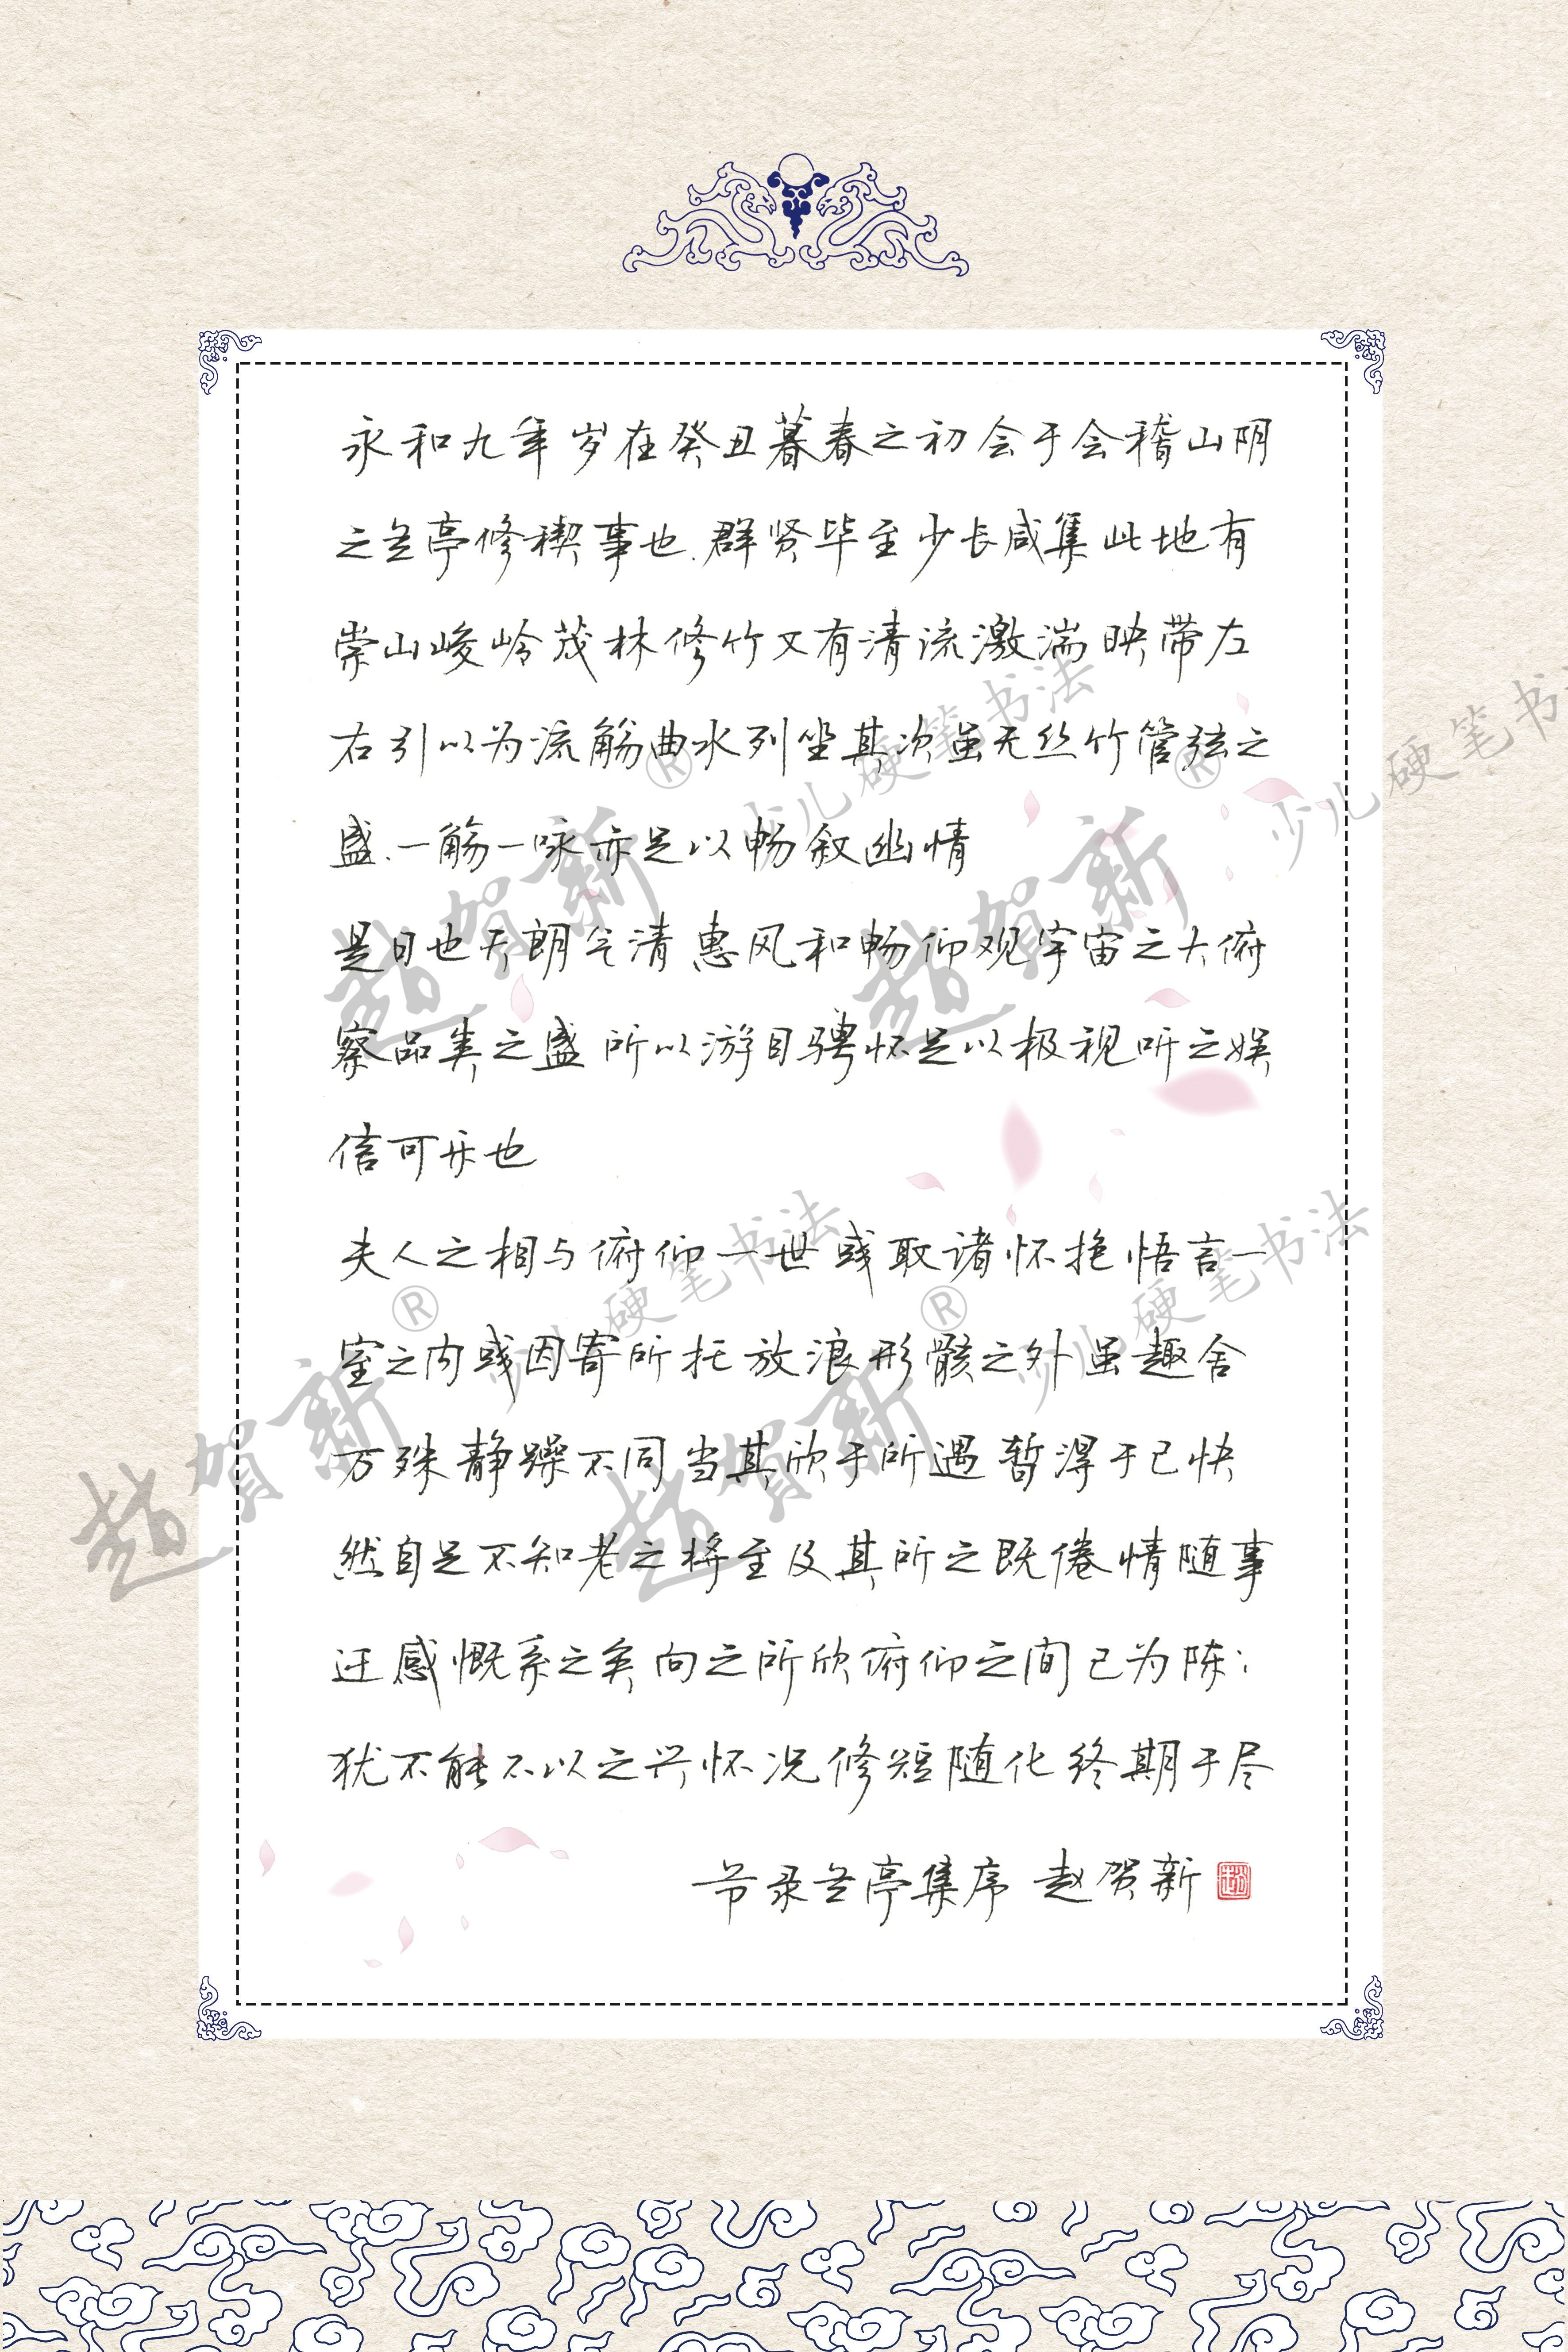 永和九年岁在癸丑暮春之初会于会稽山阴
之兰亭修禊事也.群贤毕至少长咸集此地有
崇山峻岭茂林修竹又有清流激湍映带左
右引以为流觞曲水列坐其次虽无丝竹管弦之
盛.一觞一咏亦足以畅叙幽情
是日也天朗气清惠风和畅仰观宇宙之大俯
察品类之盛所以游目骋怀足以极视听之娱
信可乐也
夫人之相与俯仰一世或取诸怀抱悟言一
室之内或因寄所托放浪形骸之外虽趣舍
万殊静躁不同当其欣于所遇暂得于己快
然自足不知老之将至及其所之既倦情随事
迁感慨系之矣向之所欣俯仰之间已为陈:
犹不能不以之兴怀况修短随化终期于尽
节录兰亭集序 赵贺新
赵贺新® 少儿硬笔书法
赵贺新® 少儿硬笔书法
赵贺新® 少儿硬笔书法
赵贺新® 少儿硬笔书法